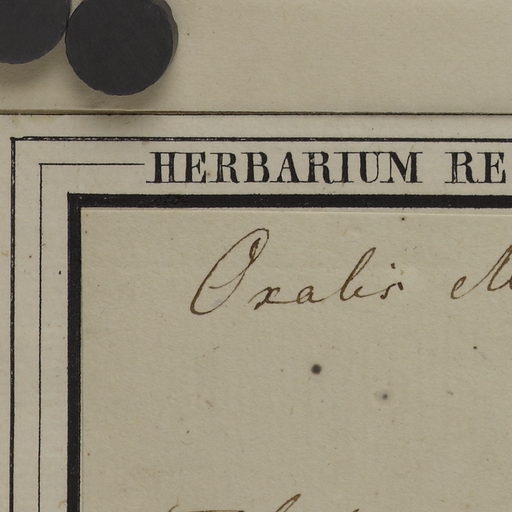 HERBARIUM RE
Oxalis